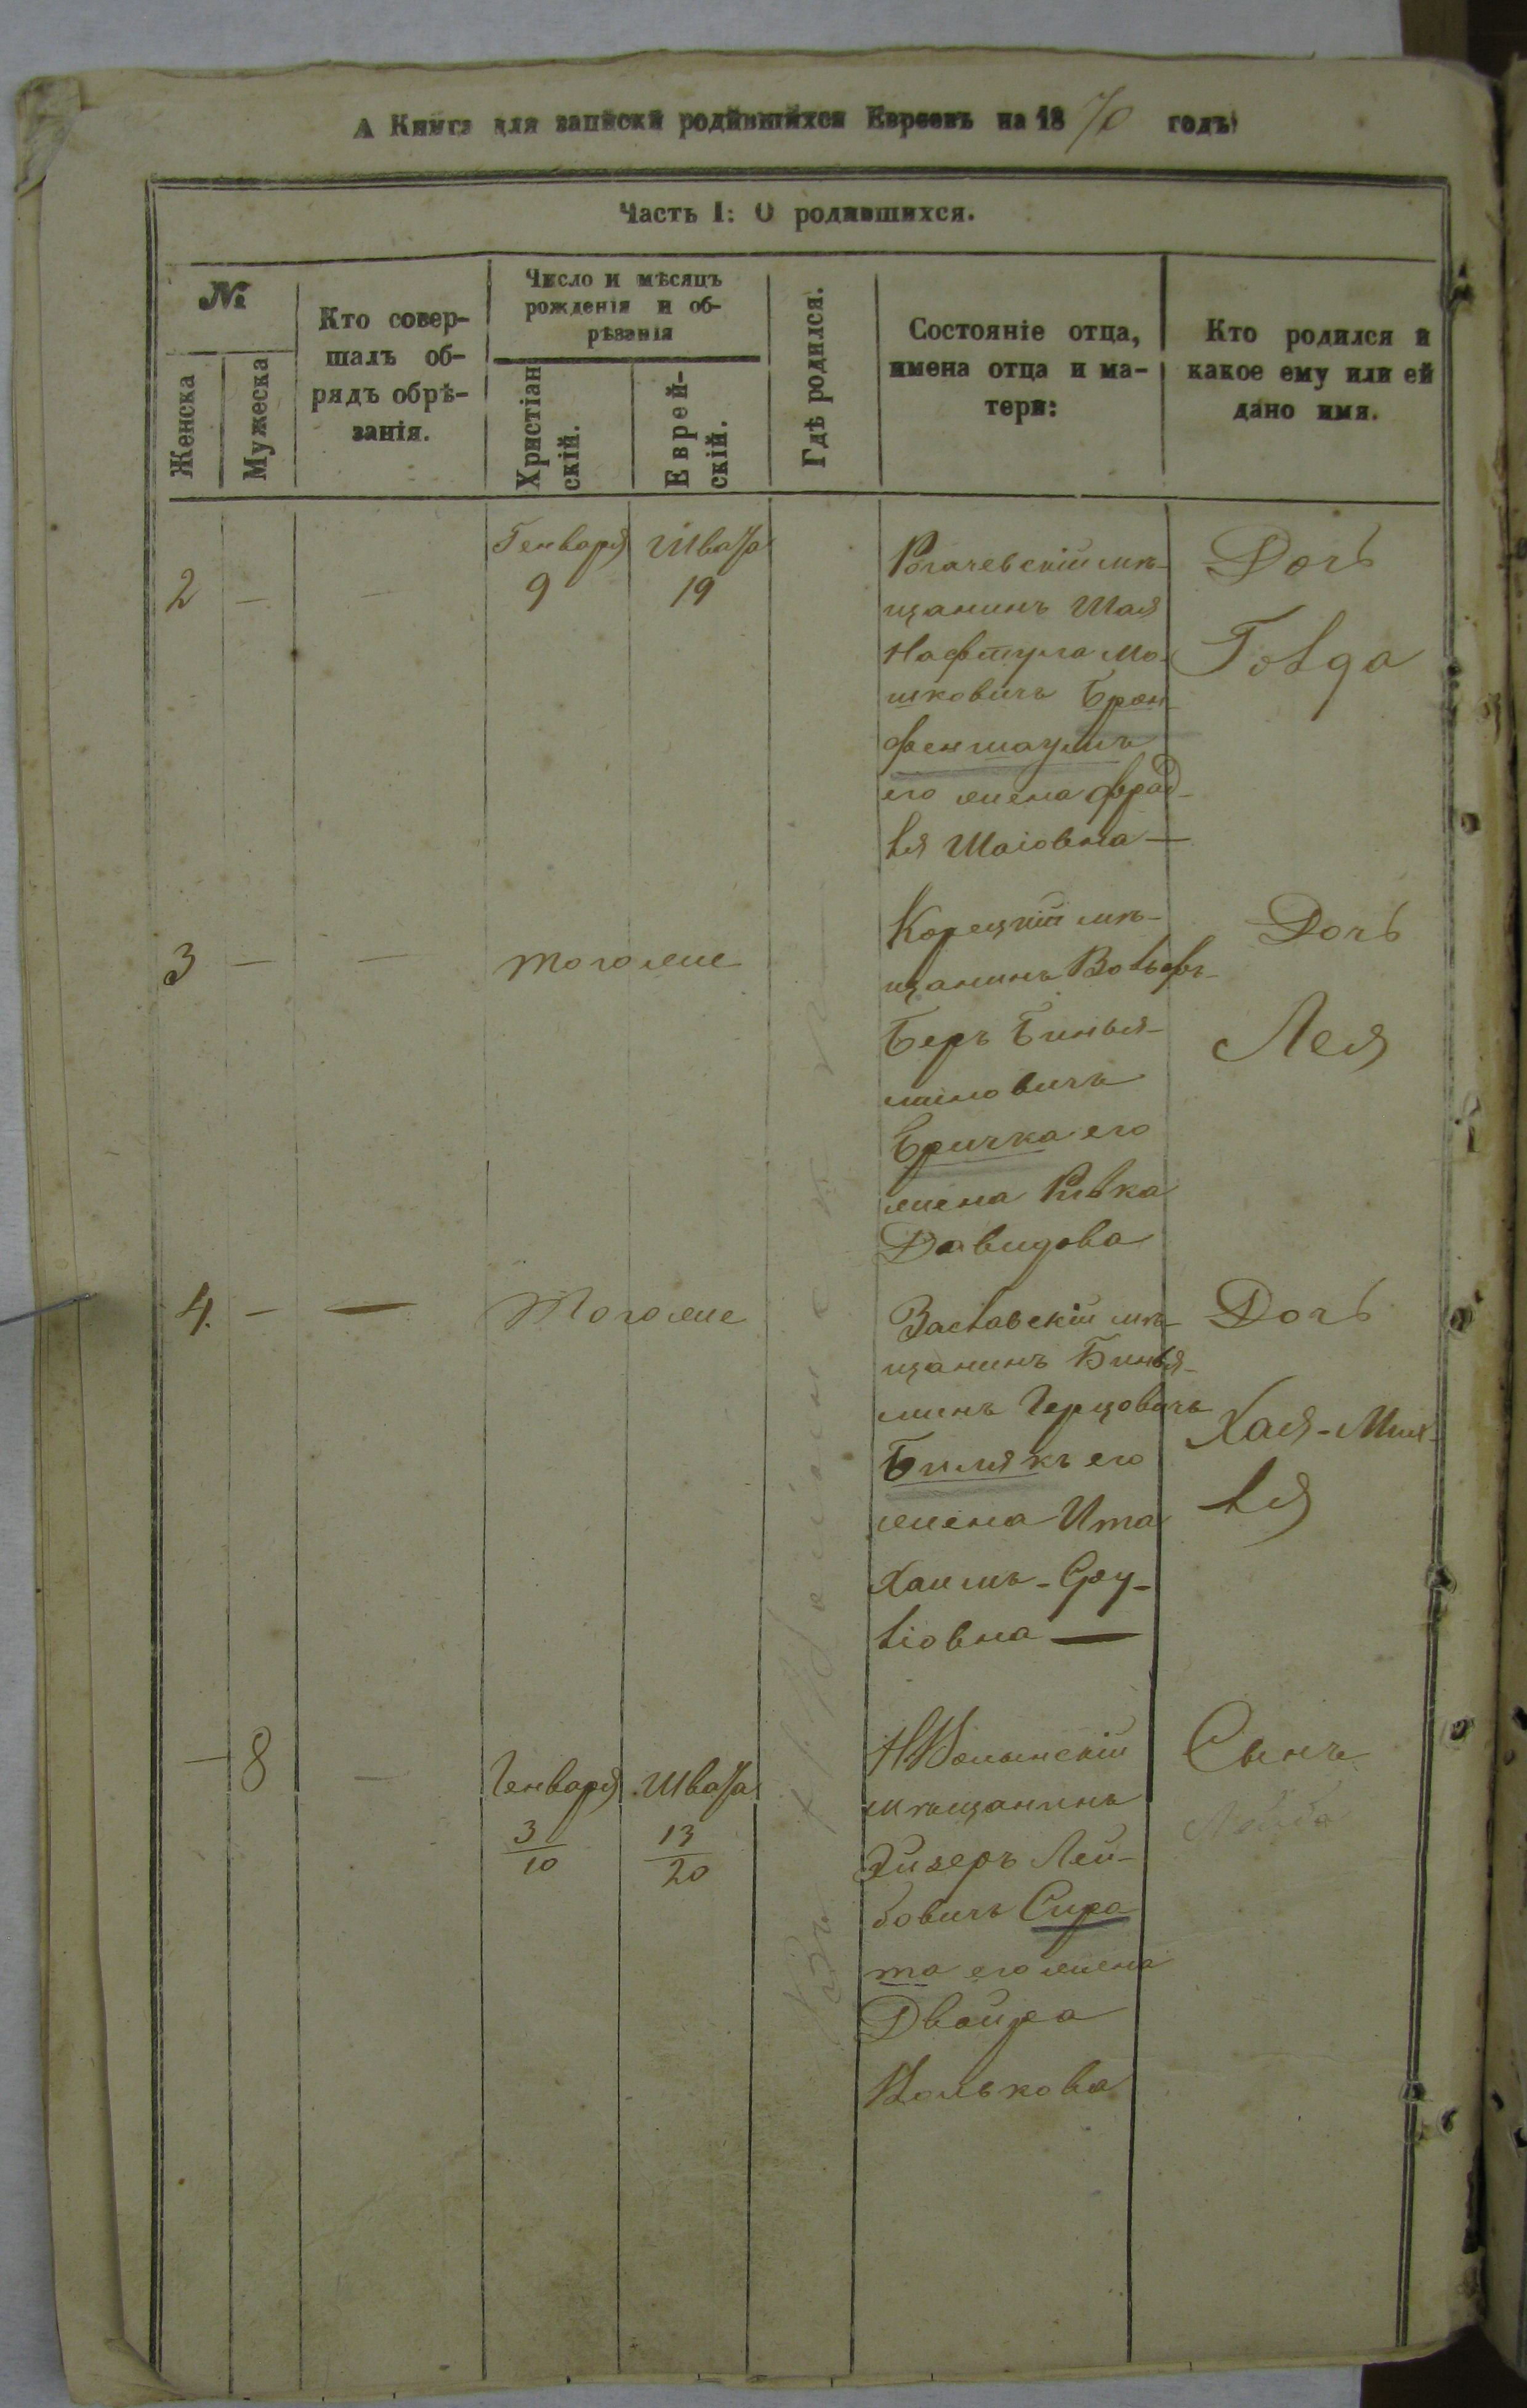 А Книга для записки родившихся Евреевъ на 1870 годъ
Часть I: О родившихся.
№
Женска
Мужеска
Кто совер-
шалъ об-
рядъ обрѣ-
занія.
Число и мѣсяцъ
рожденія и об-
рѣзанія
Христіан
скій.
Еврей-
скій.
Гдѣ родился.
Состояніе отца,
имена отца и ма-
тери:
Кто родился и
какое ему или ей
дано имя.
2 — —
Генваря
9
Швата
19
Рогачевскій мѣ-
щанинъ Шая
Нафтула Мо-
шковичъ Брон
фенмаумъ
его жена Фрад-
ля Шаіовна —
Дочь
Голда
3 — —
тогоже
Корецкій мѣ-
щанинъ Вольфъ-
Беръ Бинья-
миновичъ
Бричка его
жена Ривка
Давидова
Дочь
Лея
4. — —
Тогоже
Заславскій мѣ-
щанинъ Бинья-
минъ Герцовичъ
Бимякъ его
жена Ита
Хаимъ-Сру-
ліовна —
Дочь
Хая-Мих-
ля
— 8 —
Генваря
3
10
Швата
13
20
НВолынскій
мѣщанинъ
Эйзеръ Лей-
бовичъ Сиро
та его жена
Двойра
Волькова
Сынъ
Лейба
Въ